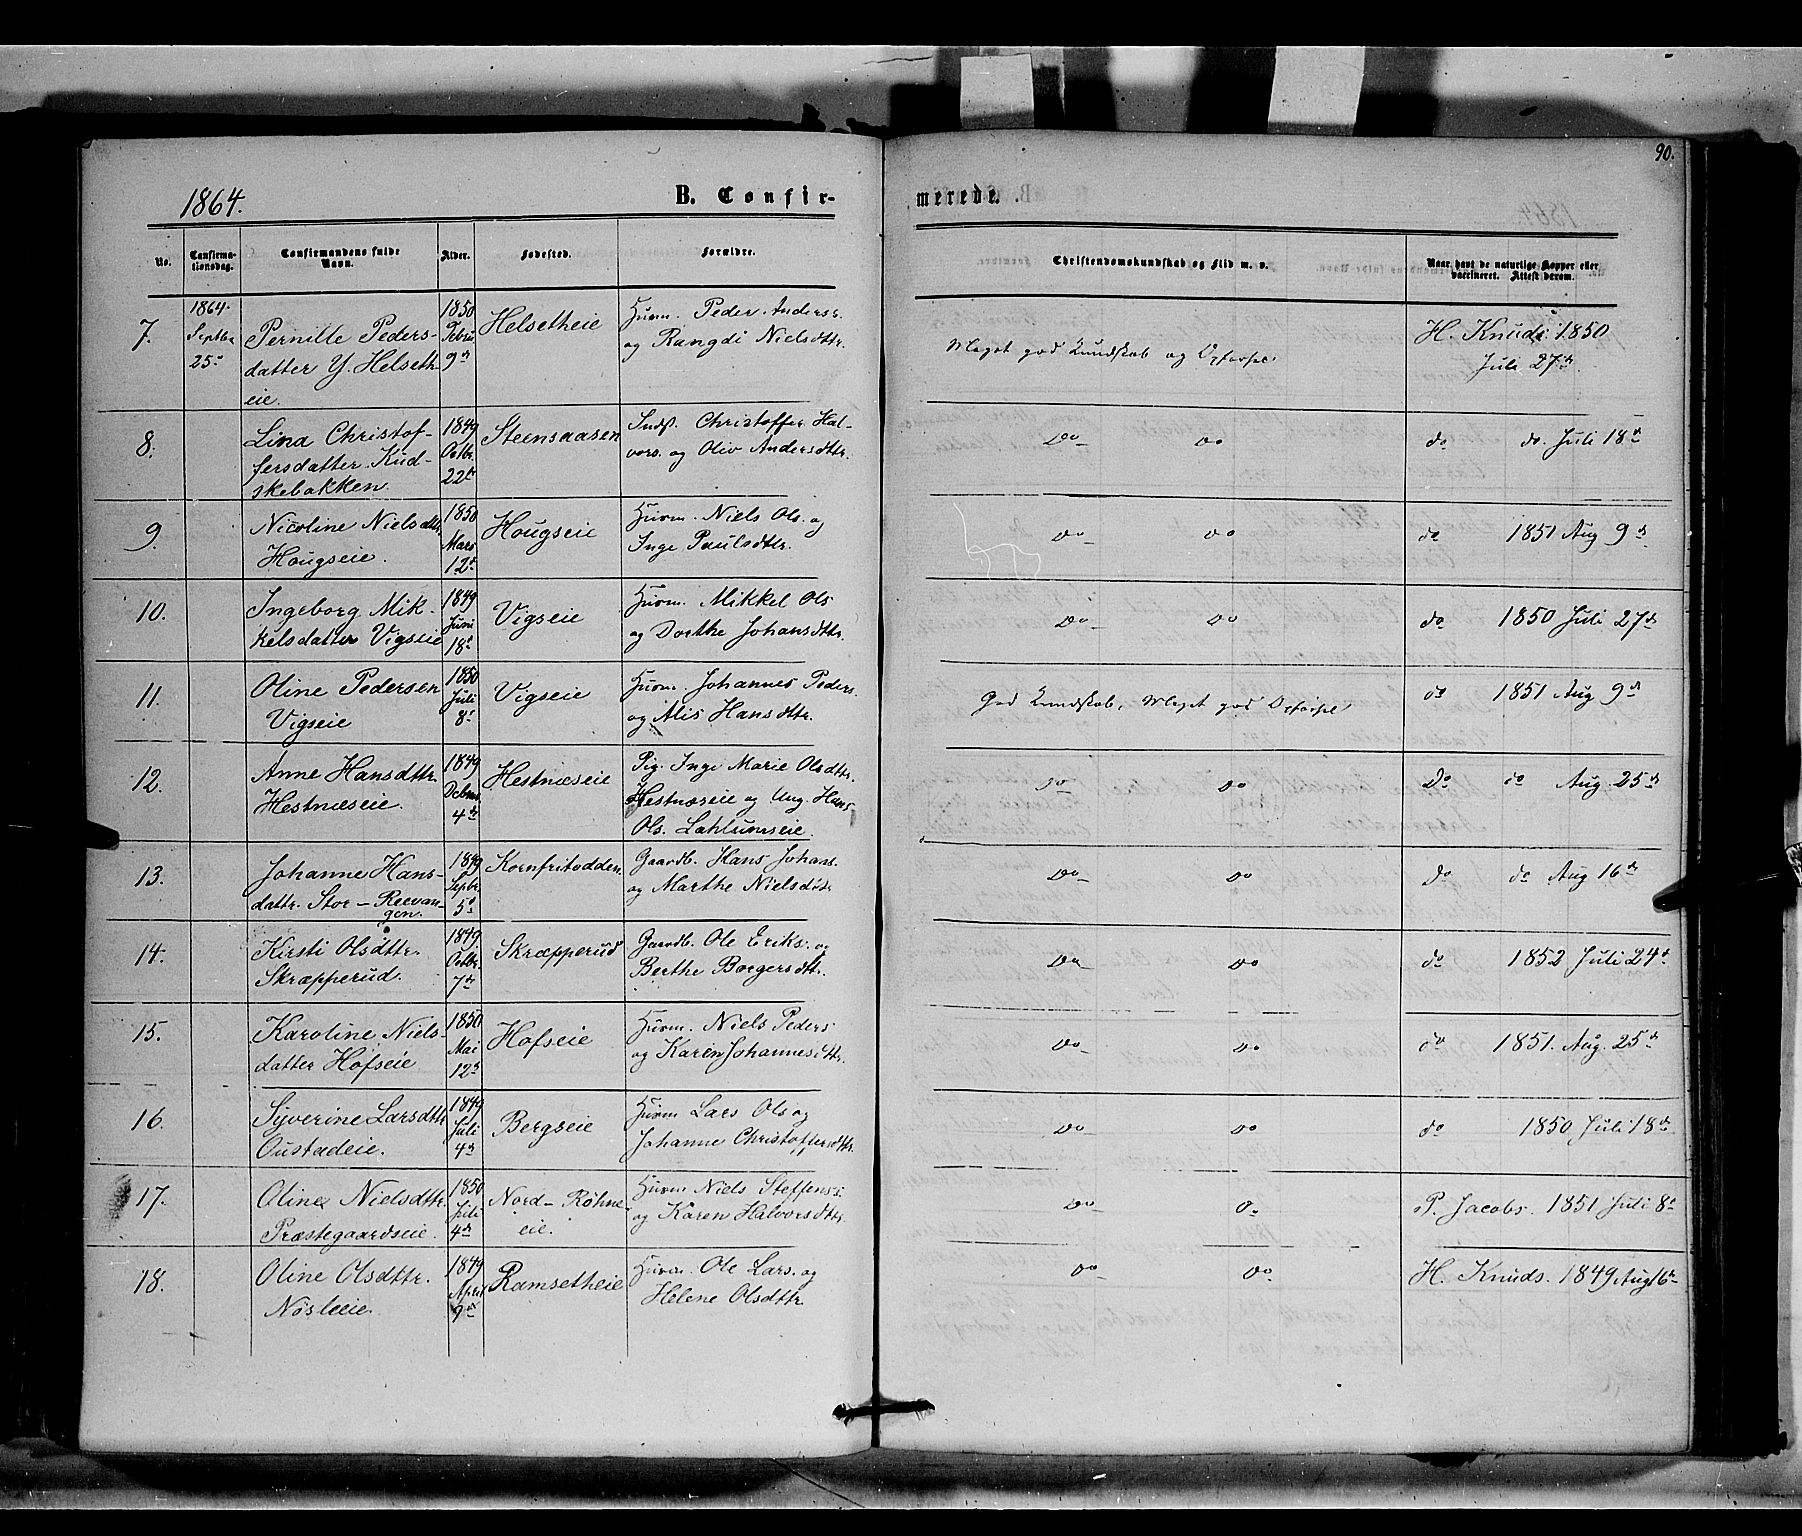 90.
1864.
B. Confir-
merede.
No.
Confirma-
tionsdag.
Confirmandens fulde
Navn.
Alder.
Fødested.
Forældre.
Christendomskundskab og Flid m. v.
Naar havt de naturlige Kopper eller
vaccineret. Attest derom.
7.
1864
Septbr
25
Pernille Peders-
datter Y. Helseth-
eie.
1850
Febru
9
Helsetheie
Huum. Peder Anders.
og Rangdi Nielsdttr.
Meget god Kundskab og Opførsel
H. Knuds. 1850
Juli 27
8.
Lina Christof-
fersdatter Kud-
skebakken.
1849
Octbr.
22
Steensaasen
Inds. Christoffer Hal-
vors. og Oliv Andersdttr.
Do do
do do. Juli 18
9.
Nicoline Nielsdttr.
Hougseie.
1850
Mars
12
Hougseie
Huum. Niels Ols. og
Inge Paulsdttr.
Do do
do 1851 Aug 9
10.
Ingeborg Mik-
kelsdatter Vigseie
1849
Juni
18
Vigseie
Huum. Mikkel Ols
og Dorthe Johansdttr.
Do do
do 1850 Juli 27
11.
Oline Pedersen
Vigseie
1850
Juli
8
Vigseie
Huum. Johannes Peders.
og Alis Hansdttr.
God Kundskab, Meget god Opførsel
do 1851 Aug 9
12.
Anne Hansdttr.
Hestnæseie.
1849
Decbr
4
Hestnæseie
Pig. Inge Marie Olsdttr.
Hestnæseie og Ung. Hans
Ols. Lahlumseie.
Do do
Do do Aug. 25
13.
Johanne Hans-
dattr. Stor-Reevan-
gen.
1849
Septbr.
5
Kornfritodden
Gaardb. Hans Johans.
og Marthe Nielsdttr
Do do
Do do Aug 16
14.
Kirsti Olsdttr.
Skræpperud.
1849
Octbr.
7
Skræpperud
Gaardb. Ole Eriks. og
Berthe Borgersdtt.
Do do
do 1852 Juli 24
15.
Karoline Niels-
datter Hofseie
1850
Mai
12
Hofseie
Huum. Niels Peders
og Karen Johannesdttr.
Do do
do 1851. Aug. 25
16.
Syverine Larsdttr
Oustadeie.
1849
Juli
4
Bergseie
Huum Lars Ols og
Johanne Christoffersdttr.
Do do
do 1850 Juli 18
17.
Oline Nielsdttr.
Præstegaardseie.
1850
Juli
4
Nord-Røhne
eie.
Huum Niels Steffens.
og Karen Halvorsdttr.
Do do
P. Jacobs. 1851 Juli 8
18.
Oline Olsdttr.
Nøsleeie.
1849
April
9
Ramsetheie
Huum. Ole Lars. og
Helene Olsdttr.
Do Do
H. Knuds. 1849 Aug 16